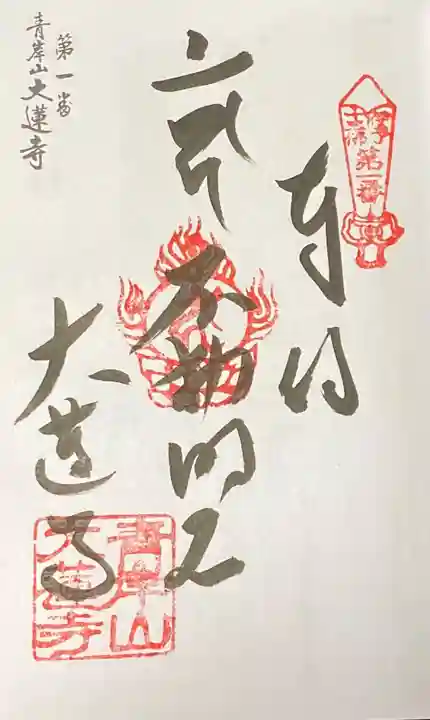 第一番
奉拝
不動明王
大蓮寺
青岸山
大蓮寺
第一番
青岸山大蓮寺